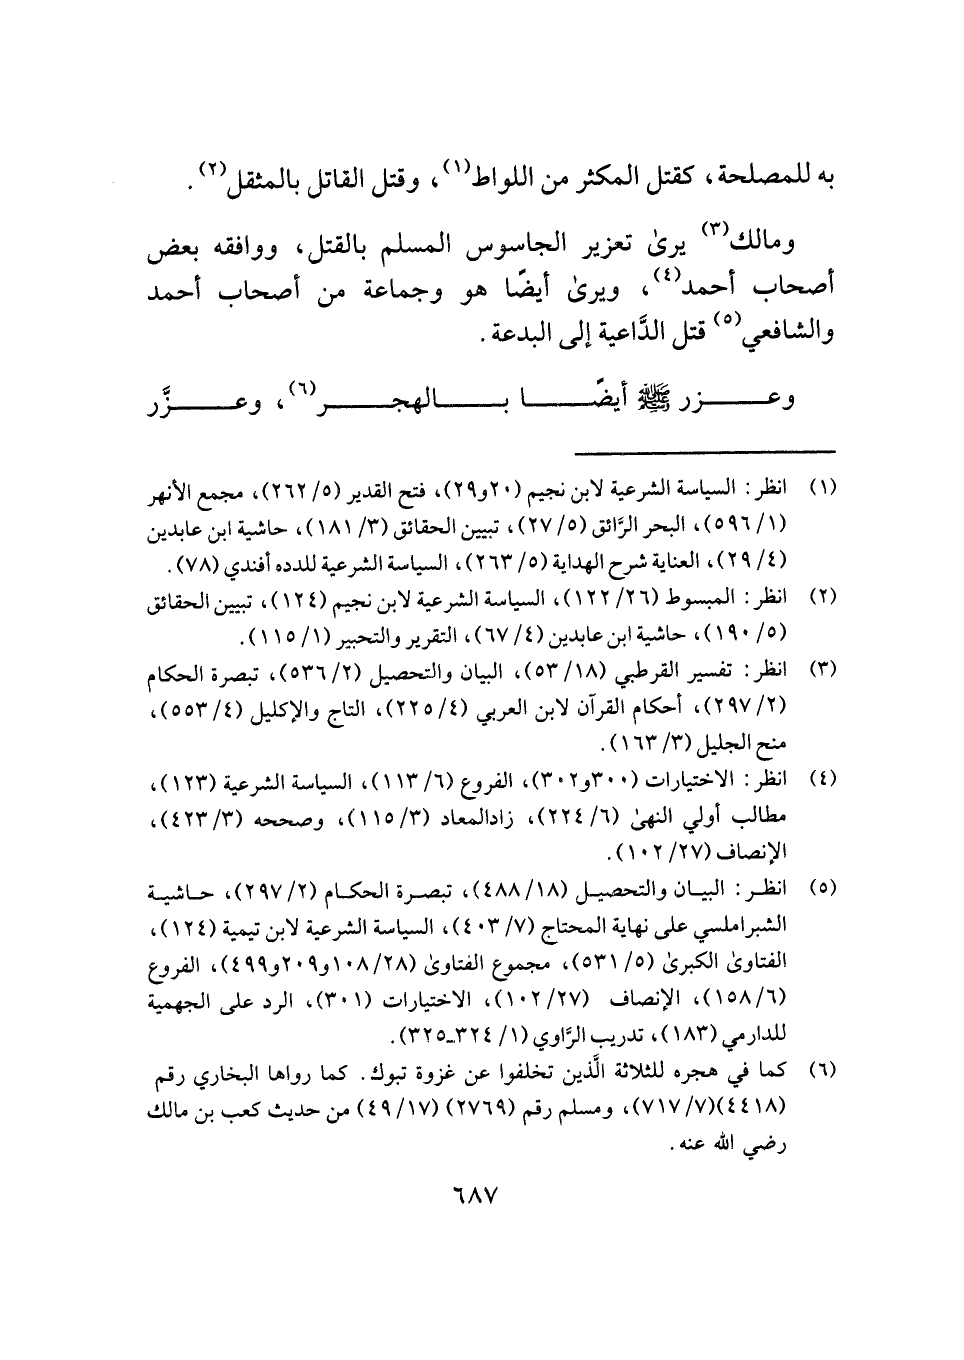 به للمصلحة، كقتل المكثر من اللواط(١)، وقتل القاتل بالمثقل(٢).
ومالك(٣) يرىٰ تعزير الجاسوس المسلم بالقتل، ووافقه بعض
أصحاب أحمد(٤)، ويرىٰ أيضًا هو وجماعة من أصحاب أحمد
والشافعي(٥) قتل الدَّاعية إلى البدعة.
وعـــــزر ﷺ أيضًـــــا بـــــالهجـــــر(٦)، وعـــــزَّر
(١) انظر: السياسة الشرعية لابن نجيم (٢٠و٢٩)، فتح القدير (٥/ ٢٦٢)، مجمع الأنهر
(١/ ٥٩٦)، البحر الرَّائق (٥/ ٢٧)، تبيين الحقائق (٣/ ١٨١)، حاشية ابن عابدين
(٤/ ٢٩)، العناية شرح الهداية (٥/ ٢٦٣)، السياسة الشرعية للدده أفندي (٧٨).
(٢) انظر: المبسوط (٢٦/ ١٢٢)، السياسة الشرعية لابن نجيم (١٢٤)، تبيين الحقائق
(٥/ ١٩٠)، حاشية ابن عابدين (٤/ ٦٧)، التقرير والتحبير (١/ ١١٥).
(٣) انظر: تفسير القرطبي (١٨/ ٥٣)، البيان والتحصيل (٢/ ٥٣٦)، تبصرة الحكام
(٢/ ٢٩٧)، أحكام القرآن لابن العربي (٤/ ٢٢٥)، التاج والإكليل (٤/ ٥٥٣)،
منح الجليل (٣/ ١٦٣).
(٤) انظر: الاختيارات (٣٠٠و٣٠٢)، الفروع (٦/ ١١٣)، السياسة الشرعية (١٢٣)،
مطالب أولي النهىٰ (٦/ ٢٢٤)، زادالمعاد (٣/ ١١٥)، وصححه (٣/ ٤٢٣)،
الإنصاف (٢٧/ ١٠٢).
(٥) انظـر: البيـان والتحصيـل (١٨/ ٤٨٨)، تبصـرة الحكـام (٢/ ٢٩٧)، حـاشيـة
الشبراملسي على نهاية المحتاج (٧/ ٤٠٣)، السياسة الشرعية لابن تيمية (١٢٤)،
الفتاوىٰ الكبرىٰ (٥/ ٥٣١)، مجموع الفتاوىٰ (٢٨/ ١٠٨و٢٠٩و٤٩٩)، الفروع
(٦/ ١٥٨)، الإنصاف (٢٧/ ١٠٢)، الاختيارات (٣٠١)، الرد على الجهمية
للدارمي (١٨٣)، تدريب الرَّاوي (١/ ٣٢٤ـ٣٢٥).
(٦) كما في هجره للثلاثة الَّذين تخلفوا عن غزوة تبوك. كما رواها البخاري رقم
(٤٤١٨)(٧/ ٧١٧)، ومسلم رقم (٢٧٦٩) (١٧/ ٤٩) من حديث كعب بن مالك
رضي الله عنه.
٦٨٧